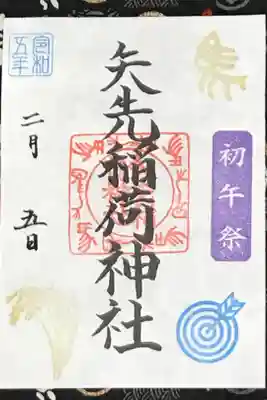 初午祭
矢先稲荷神社
令和
五年
二月
五日